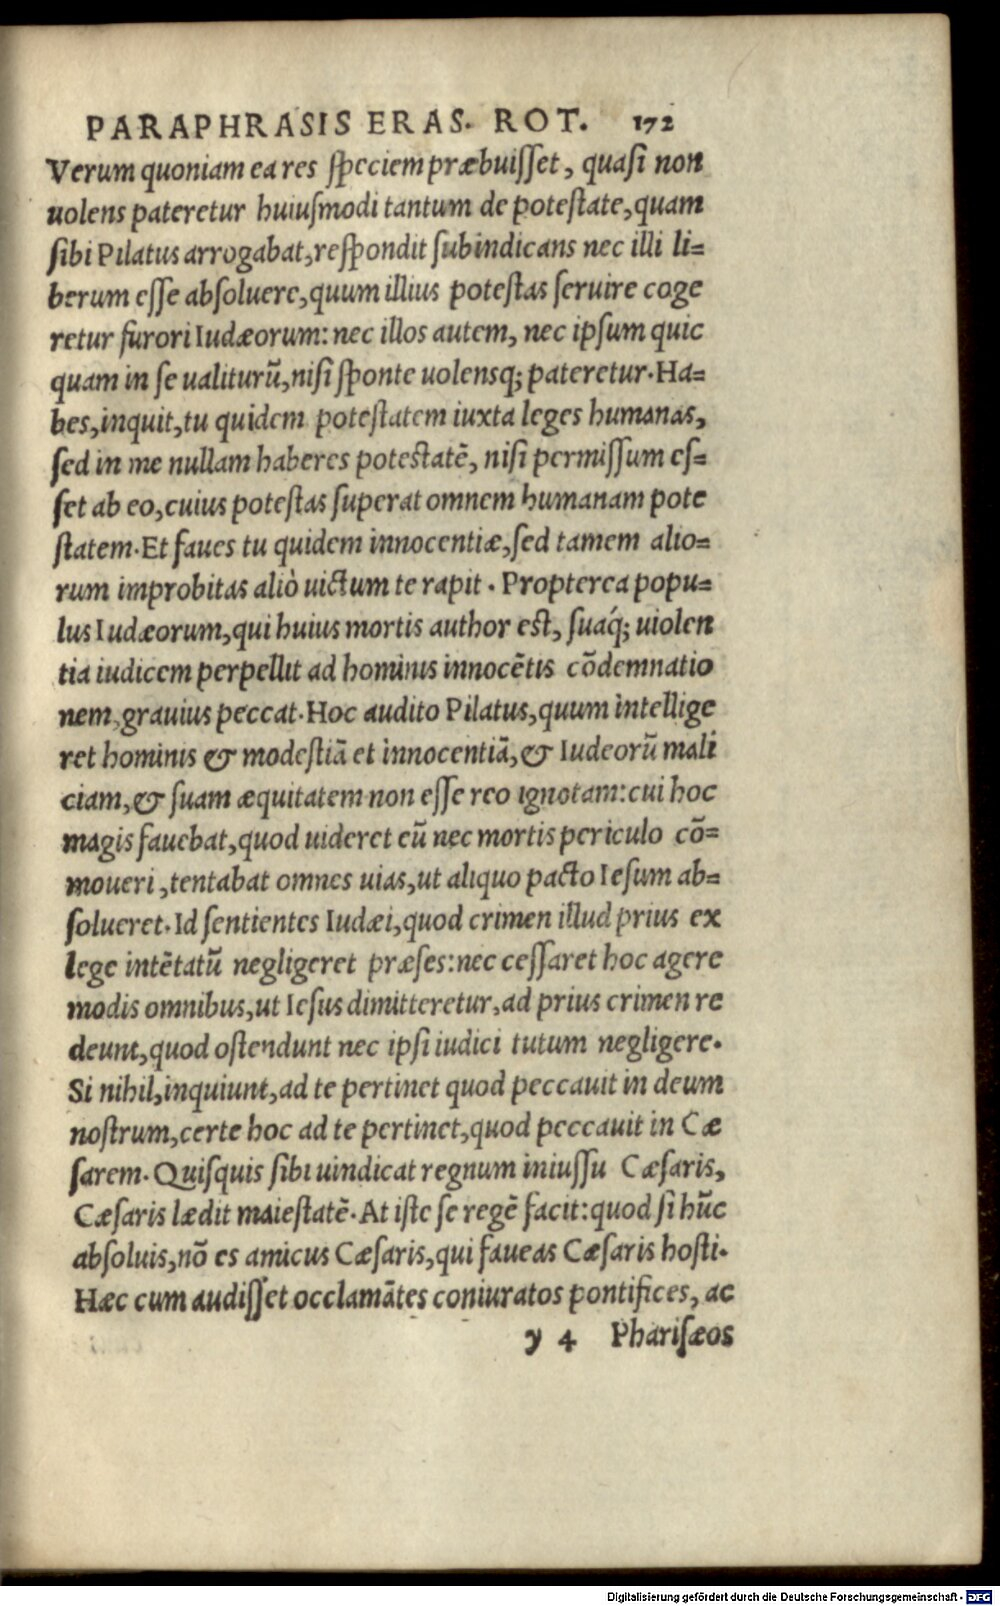 PARAPHRASIS ERAS. ROT. 172
Verum quoniam ea res speciem præbuisset, quasi non
uolens pateretur huiusmodi tantum de potestate, quam
sibi Pilatus arrogabat, respondit subindicans nec illi li=
berum esse absoluere, quum illius potestas seruire coge
retur furori Iudæorum: nec illos autem, nec ipsum quic
quam in se ualiturū, nisi sponte uolensq; pateretur. Ha=
bes, inquit, tu quidem potestatem iuxta leges humanas,
sed in me nullam haberes potestatē, nisi permissum es=
set ab eo, cuius potestas superat omnem humanam pote
statem. Et faues tu quidem innocentiæ, sed tamem alio=
rum improbitas aliò uictum te rapit. Propterea popu=
lus Iudæorum, qui huius mortis author est, suáq; uiolen
tia iudicem perpellit ad hominis innocētis cōdemnatio
nem, grauius peccat. Hoc audito Pilatus, quum intellige
ret hominis & modestiā et innocentiā, & Iudeorū mali
ciam, & suam æquitatem non esse reo ignotam: cui hoc
magis fauebat, quod uideret eū nec mortis periculo cō=
moueri, tentabat omnes uias, ut aliquo pacto Iesum ab=
solueret. Id sentientes Iudæi, quod crimen illud prius ex
lege intētatū negligeret præses: nec cessaret hoc agere
modis omnibus, ut Iesus dimitteretur, ad prius crimen re
deunt, quod ostendunt nec ipsi iudici tutum negligere.
Si nihil, inquiunt, ad te pertinet quod peccauit in deum
nostrum, certe hoc ad te pertinet, quod peccauit in Cæ
sarem. Quisquis sibi uindicat regnum iniussu Cæsaris,
Cæsaris lædit maiestatē. At iste se regē facit: quod si hūc
absoluis, nō es amicus Cæsaris, qui faueas Cæsaris hosti.
Hæc cum audisset occlamātes coniuratos pontifices, ac
y 4 Pharisæos
Digitalisierung gefördert durch die Deutsche Forschungsgemeinschaft - DFG